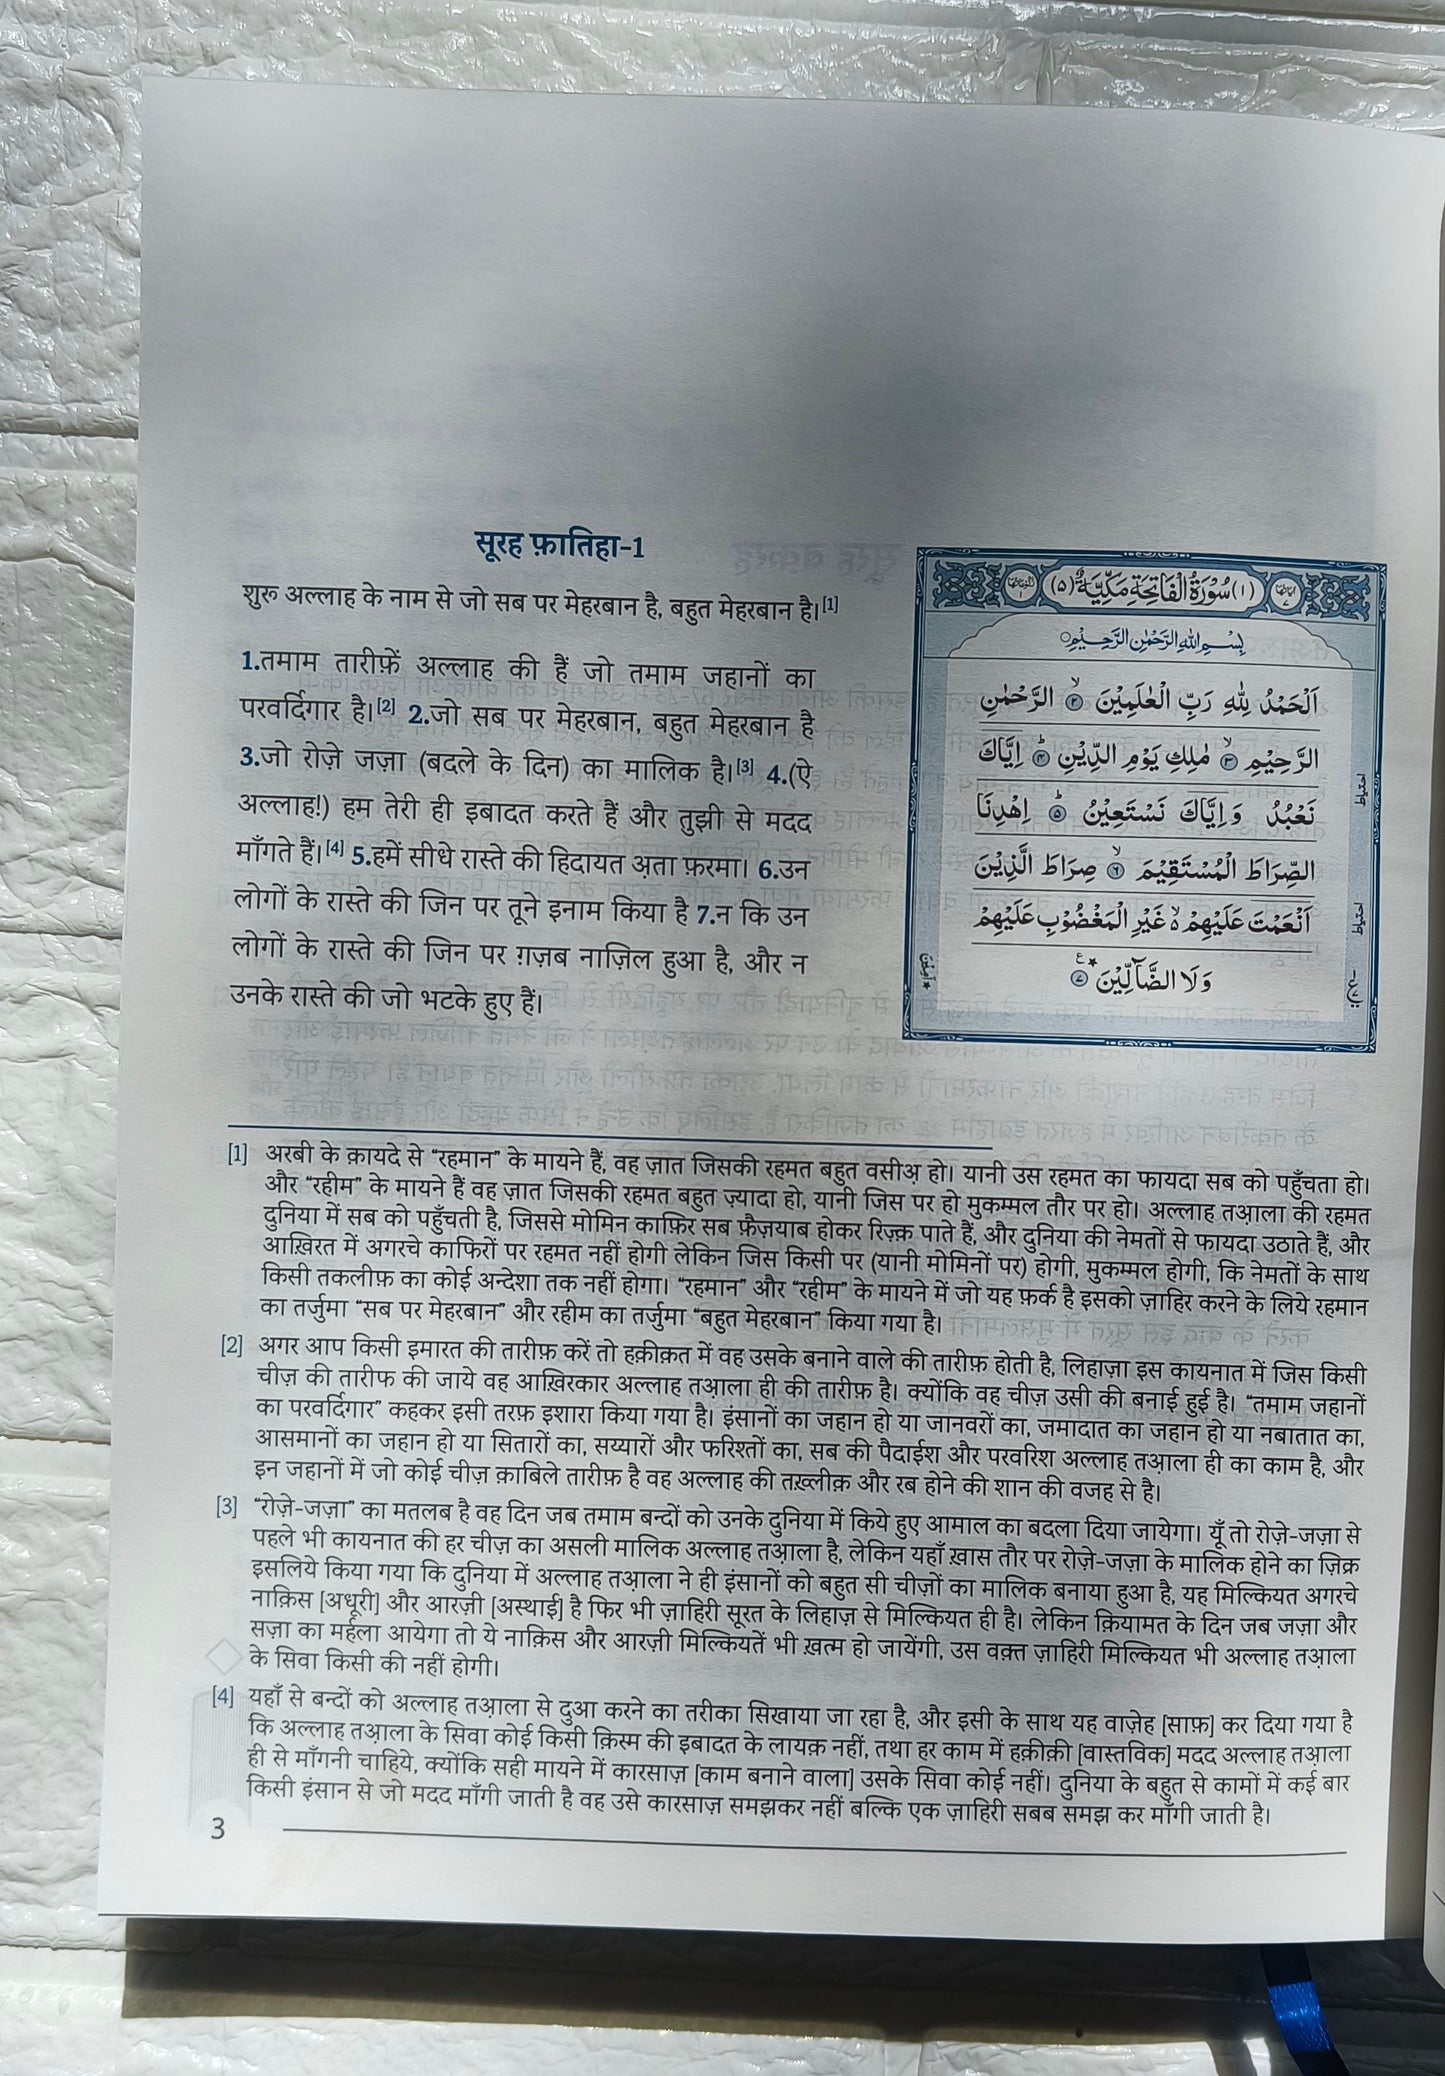 सूरह फ़ातिहा-1
शुरू अल्लाह के नाम से जो सब पर मेहरबान है, बहुत मेहरबान है।[1]
1.तमाम तारीफ़ें अल्लाह की हैं जो तमाम जहानों का
परवर्दिगार है।[2] 2.जो सब पर मेहरबान, बहुत मेहरबान है
3.जो रोज़े जज़ा (बदले के दिन) का मालिक है।[3] 4.(ऐ
अल्लाह!) हम तेरी ही इबादत करते हैं और तुझी से मदद
माँगते हैं।[4] 5.हमें सीधे रास्ते की हिदायत अ़ता फ़रमा। 6.उन
लोगों के रास्ते की जिन पर तूने इनाम किया है 7.न कि उन
लोगों के रास्ते की जिन पर ग़ज़ब नाज़िल हुआ है, और न
उनके रास्ते की जो भटके हुए हैं।
(١) سُوْرَةُ الْفَاتِحَةِ مَكِّيَّةٌ (٥)
بِسْمِ اللهِ الرَّحْمٰنِ الرَّحِيْمِ
اَلْحَمْدُ لِلّٰهِ رَبِّ الْعٰلَمِيْنَ ۙ﴿۲﴾ الرَّحْمٰنِ
الرَّحِيْمِ ۙ﴿۳﴾ مٰلِكِ يَوْمِ الدِّيْنِ ؕ﴿۴﴾ اِيَّاكَ
نَعْبُدُ وَ اِيَّاكَ نَسْتَعِيْنُ ؕ﴿۵﴾ اِهْدِنَا
الصِّرَاطَ الْمُسْتَقِيْمَ ۙ﴿۶﴾ صِرَاطَ الَّذِيْنَ
اَنْعَمْتَ عَلَيْهِمْ ۙ۬ غَيْرِ الْمَغْضُوْبِ عَلَيْهِمْ
وَلَا الضَّآلِّيْنَ ﴿۷﴾
[1] अरबी के क़ायदे से “रहमान” के मायने हैं, वह ज़ात जिसकी रहमत बहुत वसीअ़ हो। यानी उस रहमत का फायदा सब को पहुँचता हो।
और “रहीम” के मायने हैं वह ज़ात जिसकी रहमत बहुत ज़्यादा हो, यानी जिस पर हो मुकम्मल तौर पर हो। अल्लाह तआ़ला की रहमत
दुनिया में सब को पहुँचती है, जिससे मोमिन काफ़िर सब फ़ैज़याब होकर रिज़्क़ पाते हैं, और दुनिया की नेमतों से फायदा उठाते हैं, और
आख़िरत में अगरचे काफिरों पर रहमत नहीं होगी लेकिन जिस किसी पर (यानी मोमिनों पर) होगी, मुकम्मल होगी, कि नेमतों के साथ
किसी तकलीफ़ का कोई अन्देशा तक नहीं होगा। “रहमान” और “रहीम” के मायने में जो यह फ़र्क है इसको ज़ाहिर करने के लिये रहमान
का तर्जुमा “सब पर मेहरबान” और रहीम का तर्जुमा “बहुत मेहरबान” किया गया है।
[2] अगर आप किसी इमारत की तारीफ़ करें तो हक़ीक़त में वह उसके बनाने वाले की तारीफ़ होती है, लिहाज़ा इस कायनात में जिस किसी
चीज़ की तारीफ की जाये वह आख़िरकार अल्लाह तआ़ला ही की तारीफ़ है। क्योंकि वह चीज़ उसी की बनाई हुई है। “तमाम जहानों
का परवर्दिगार” कहकर इसी तरफ़ इशारा किया गया है। इंसानों का जहान हो या जानवरों का, जमादात का जहान हो या नबातात का,
आसमानों का जहान हो या सितारों का, सय्यारों और फरिश्तों का, सब की पैदाईश और परवरिश अल्लाह तआ़ला ही का काम है, और
इन जहानों में जो कोई चीज़ क़ाबिले तारीफ़ है वह अल्लाह की तख़्लीक़ और रब होने की शान की वजह से है।
[3] “रोज़े-जज़ा” का मतलब है वह दिन जब तमाम बन्दों को उनके दुनिया में किये हुए आमाल का बदला दिया जायेगा। यूँ तो रोज़े-जज़ा से
पहले भी कायनात की हर चीज़ का असली मालिक अल्लाह तआ़ला है, लेकिन यहाँ ख़ास तौर पर रोज़े-जज़ा के मालिक होने का ज़िक्र
इसलिये किया गया कि दुनिया में अल्लाह तआ़ला ने ही इंसानों को बहुत सी चीज़ों का मालिक बनाया हुआ है, यह मिल्कियत अगरचे
नाक़िस [अधूरी] और आरज़ी [अस्थाई] है फिर भी ज़ाहिरी सूरत के लिहाज़ से मिल्कियत ही है। लेकिन क़ियामत के दिन जब जज़ा और
सज़ा का मर्हला आयेगा तो ये नाक़िस और आरज़ी मिल्कियतें भी ख़त्म हो जायेंगी, उस वक़्त ज़ाहिरी मिल्कियत भी अल्लाह तआ़ला
के सिवा किसी की नहीं होगी।
[4] यहाँ से बन्दों को अल्लाह तआ़ला से दुआ करने का तरीका सिखाया जा रहा है, और इसी के साथ यह वाज़ेह [साफ़] कर दिया गया है
कि अल्लाह तआ़ला के सिवा कोई किसी क़िस्म की इबादत के लायक़ नहीं, तथा हर काम में हक़ीक़ी [वास्तविक] मदद अल्लाह तआ़ला
ही से माँगनी चाहिये, क्योंकि सही मायने में कारसाज़ [काम बनाने वाला] उसके सिवा कोई नहीं। दुनिया के बहुत से कामों में कई बार
किसी इंसान से जो मदद माँगी जाती है वह उसे कारसाज़ समझकर नहीं बल्कि एक ज़ाहिरी सबब समझ कर माँगी जाती है।
3